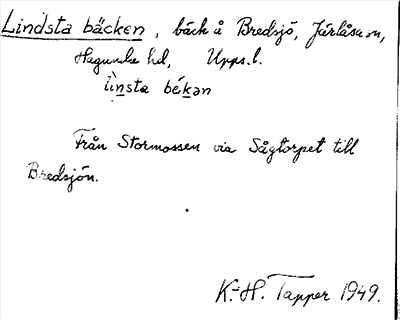 Lindsta bäcken, bäck å Bredsjö, Järlåsa sn,
Hagunda hd, Upps. l.
lìnsta békən
Från Stormossen via Sågtorpet till
Bredsjön.
K.-H. Tapper 1949.